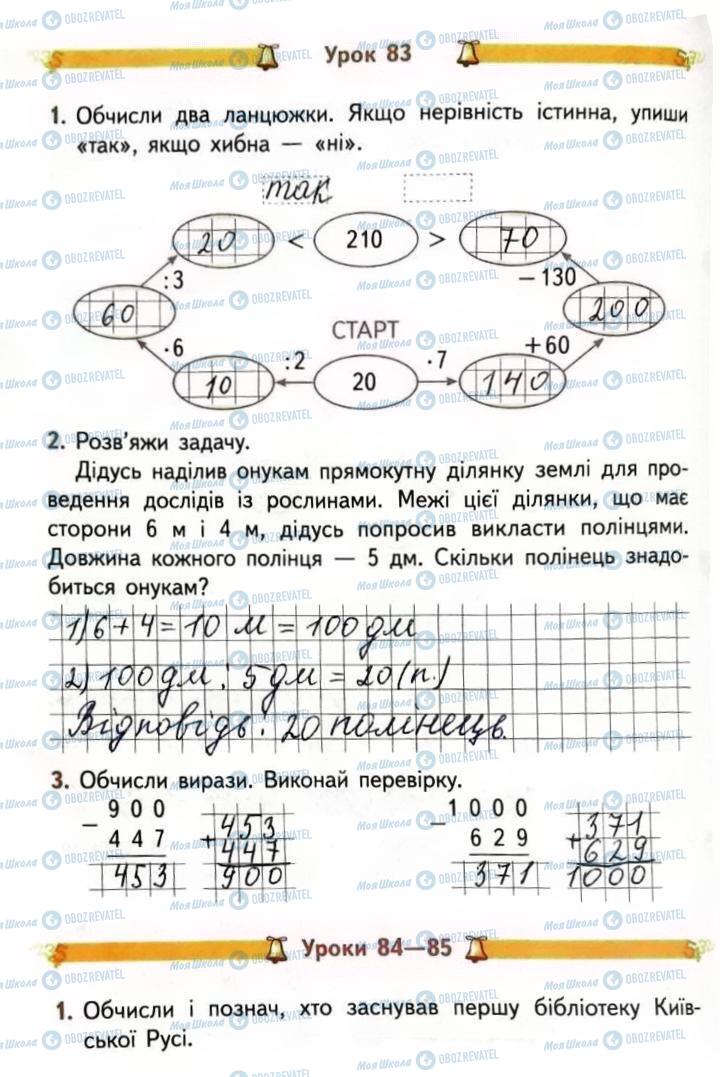 Урок 83
1. Обчисли два ланцюжки. Якщо нерівність істинна, упиши
«так», якщо хибна — «ні».
так
20 < 210 > 70
:3 − 130
60 200
СТАРТ
·6 :2 ·7 + 60
10 20 140
2. Розв'яжи задачу.
Дідусь наділив онукам прямокутну ділянку землі для про-
ведення дослідів із рослинами. Межі цієї ділянки, що має
сторони 6 м і 4 м, дідусь попросив викласти полінцями.
Довжина кожного полінця — 5 дм. Скільки полінець знадо-
биться онукам?
1) 6 + 4 = 10 м = 100 дм
2) 100 дм : 5 дм = 20 (п.)
Відповідь: 20 полінець.
3. Обчисли вирази. Виконай перевірку.
− 900 453 − 1000 371
447 + 447 629 + 629
453 900 371 1000
Уроки 84—85
1. Обчисли і познач, хто заснував першу бібліотеку Київ-
ської Русі.
МояШкола OBOZREVATEL